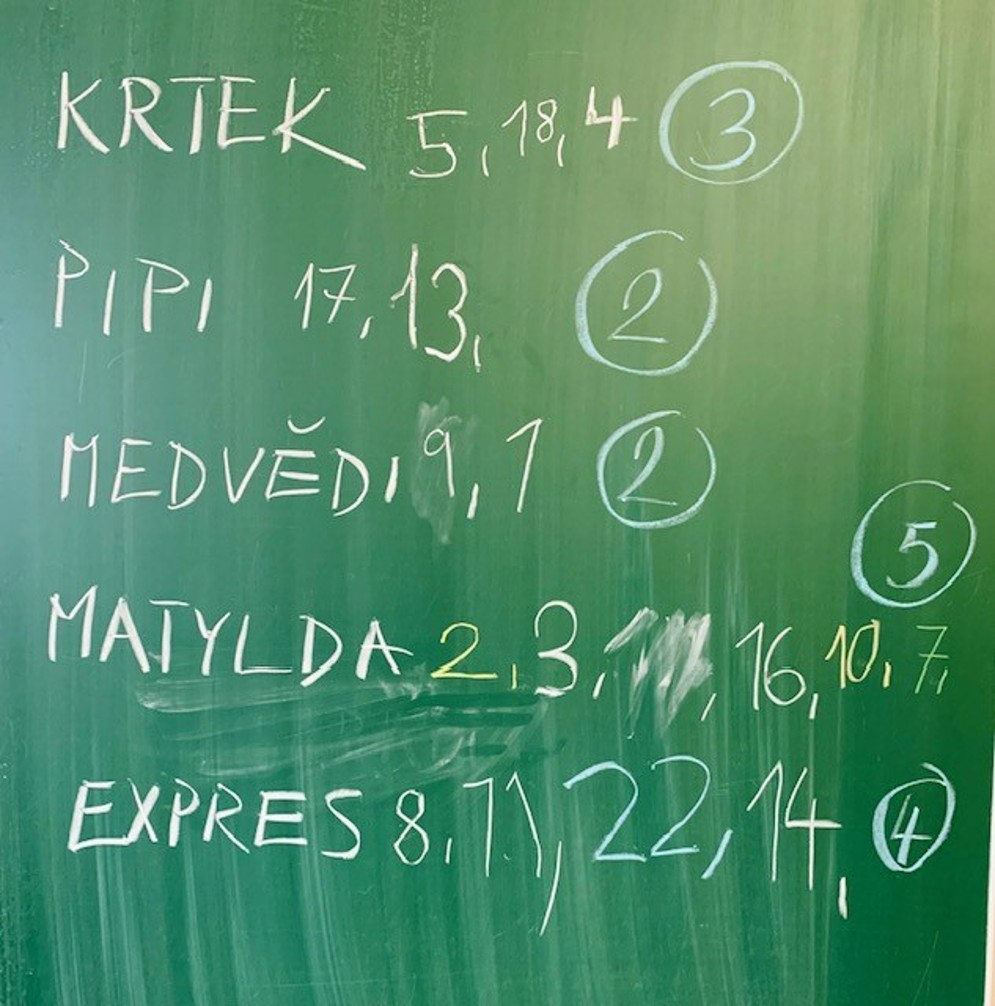 KRTEK 5, 18, 4 3
PIPI 17, 13, 2
MEDVĚDI 9, 1 2
5
MATYLDA 2, 3, , 16, 10, 7,
EXPRES 8, 11, 22, 14, 4